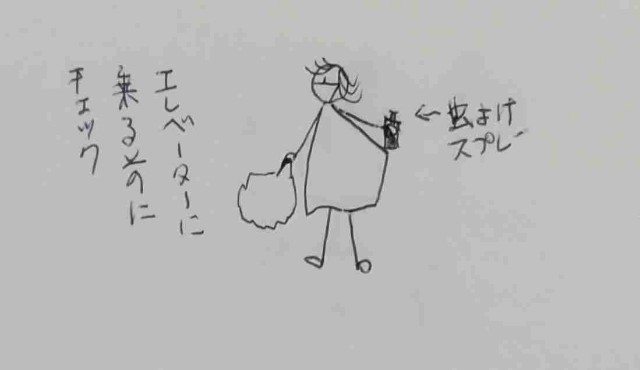 エレベーターに
乗るとのに
チェック
←虫よけ
スプレー